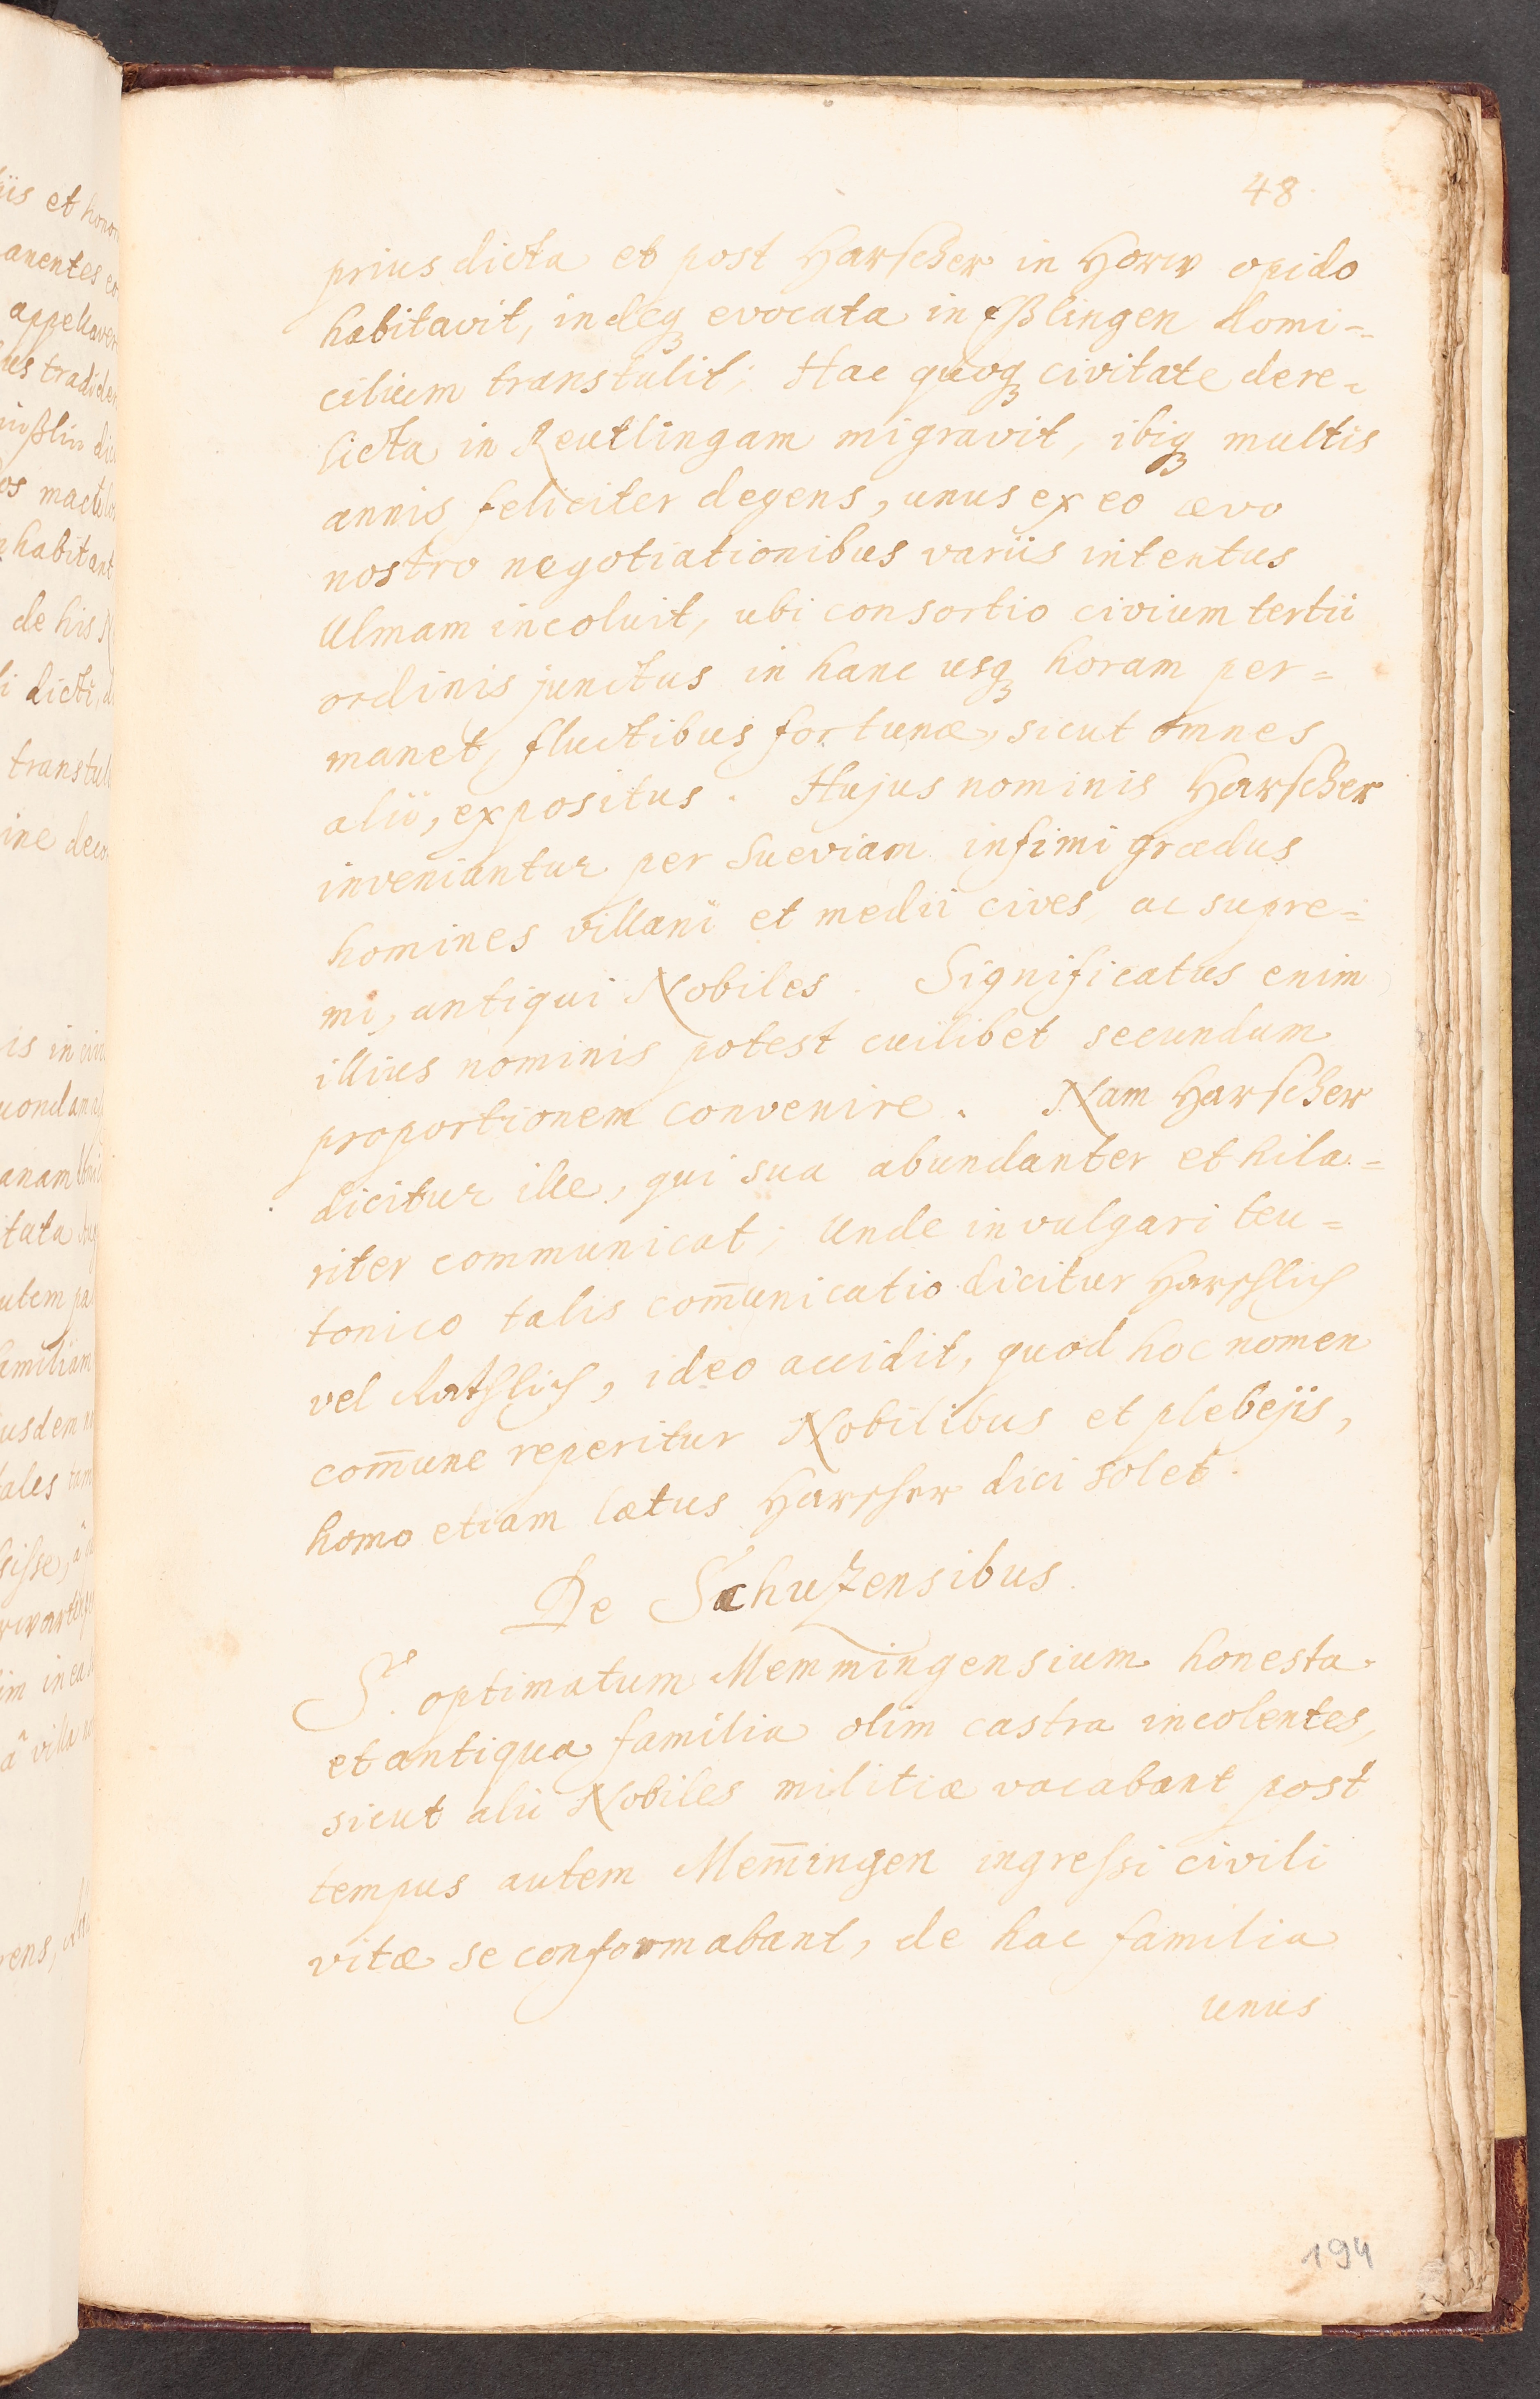 48
prius dicta et post Harscher in Horw opido
habitavit, indeq₃ evocata in Eßlingen domi=
cilium transtulit; Hac quoq₃ civitate dere=
licta in Reutlingam migravit, ibiq₃ multis
annis feliciter degens, unus ex eo ævo
nostro negotiationibus variis intentus
Ulmam incoluit, ubi consortio civium tertii
ordinis junctus in hanc usq₃ horam per=
manet, fluctibus fortunæ, sicut omnes
alii, expositus. Hujus nominis Harscher
inveniantur per Sueviam infimi gradus
homines villani et medii cives, ac supre=
mi, antiqui Nobiles. Significatus enim
illius nominis potest cuilibet secundum
proportionem convenire. Nam Harscher
dicitur ille, qui sua abundanter et hila=
riter communicat; Unde in vulgari teu=
tonico talis com̄unicatio dicitur Harschlich
vel Rathlich, ideo accidit, quod hoc nomen
com̄une reperitur Nobilibus et plebejis,
homo etiam lætus Harscher dici solet.
De Schuzensibus
S. optimatum Memmingensium honesta
et antiqua familia olim castra incolentes,
sicut alii Nobiles militiæ vacabant post
tempus autem Mem̄ingen ingressi civili
vitæ se conformabant, de hac familia
unus
194